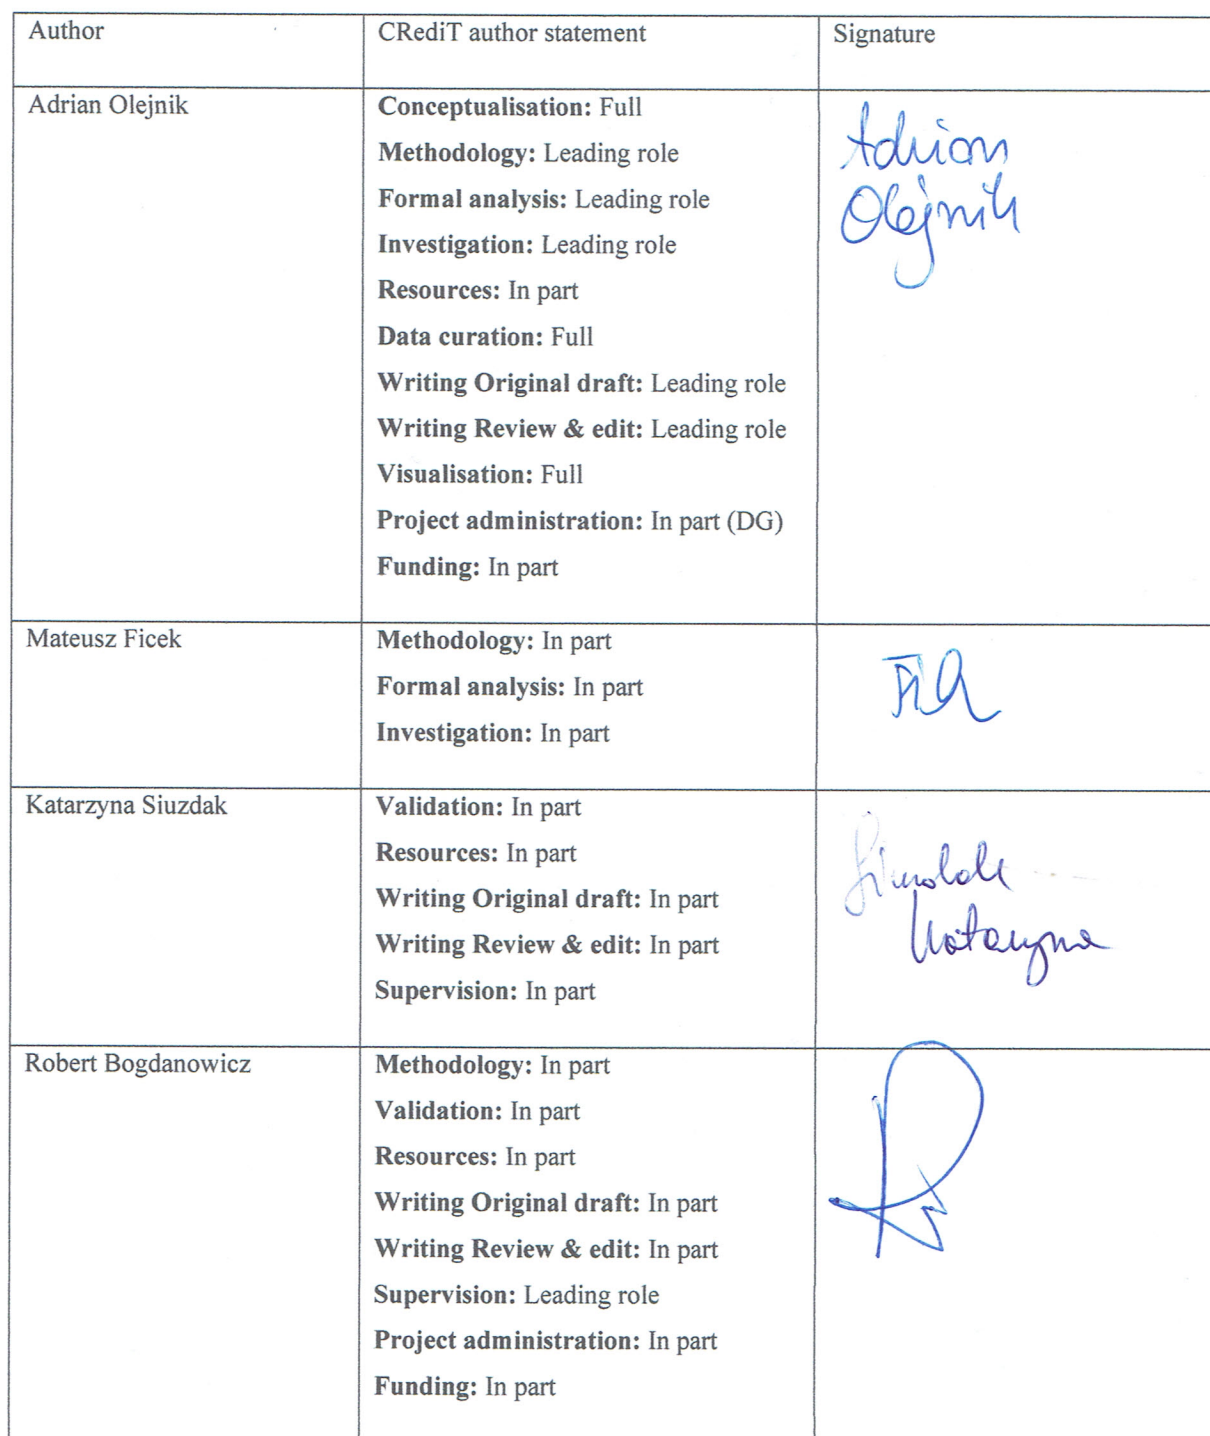 Author CRediT author statement Signature
Adrian Olejnik Conceptualisation: Full Adrian
Methodology: Leading role Olejnik
Formal analysis: Leading role
Investigation: Leading role
Resources: In part
Data curation: Full
Writing Original draft: Leading role
Writing Review & edit: Leading role
Visualisation: Full
Project administration: In part (DG)
Funding: In part
Mateusz Ficek Methodology: In part
Formal analysis: In part
Investigation: In part
Katarzyna Siuzdak Validation: In part
Resources: In part Siuzdak
Writing Original draft: In part Katarzyna
Writing Review & edit: In part
Supervision: In part
Robert Bogdanowicz Methodology: In part
Validation: In part
Resources: In part
Writing Original draft: In part
Writing Review & edit: In part
Supervision: Leading role
Project administration: In part
Funding: In part